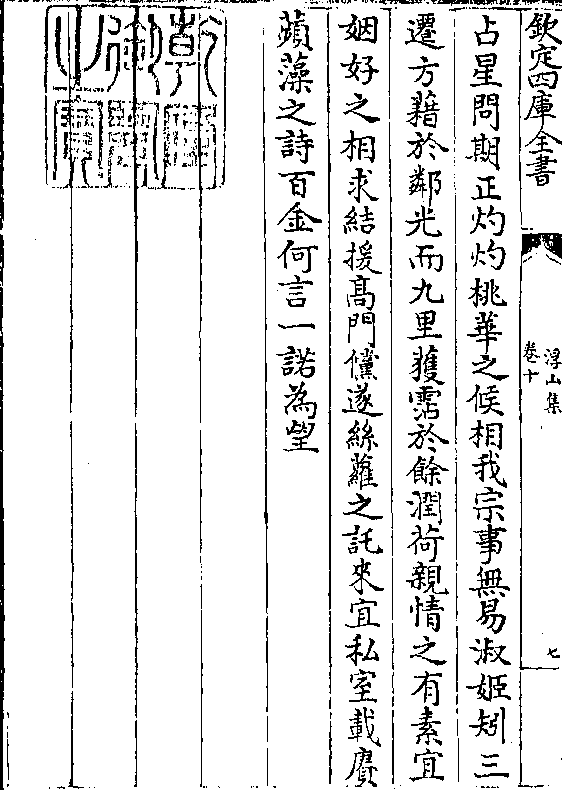 欽定四庫全書
浮山集
卷十
七
占星問期正灼灼桃華之候相我宗事無易淑姬矧三
遷方藉於鄰光而九里獲霑於餘潤荷親情之有素宜
姻好之相求結援髙門儻遂絲蘿之託來宜私室載賡
蘋藻之詩百金何言一諾為望
乾隆御覽之寶